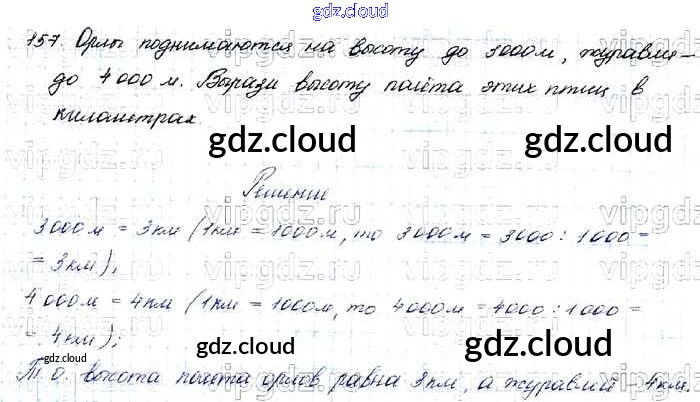 gdz.cloud
157. Орлы поднимаются на высоту до 3000 м, журавли –
до 4 000 м. Вырази высоту полёта этих птиц в
километрах.
gdz.cloud gdz.cloud
Решение
3000 м = 3 км (1 км = 1000 м, то 3000 м = 3000 : 1000 =
= 3 км);
4 000 м = 4 км (1 км = 1000 м, то 4000 м = 4000 : 1000 =
= 4 км);
gdz.cloud gdz.cloud
gdz.cloud
Т. о. высота полёта орлов равна 3 км, а журавлей 4 км.
gdz.cloud